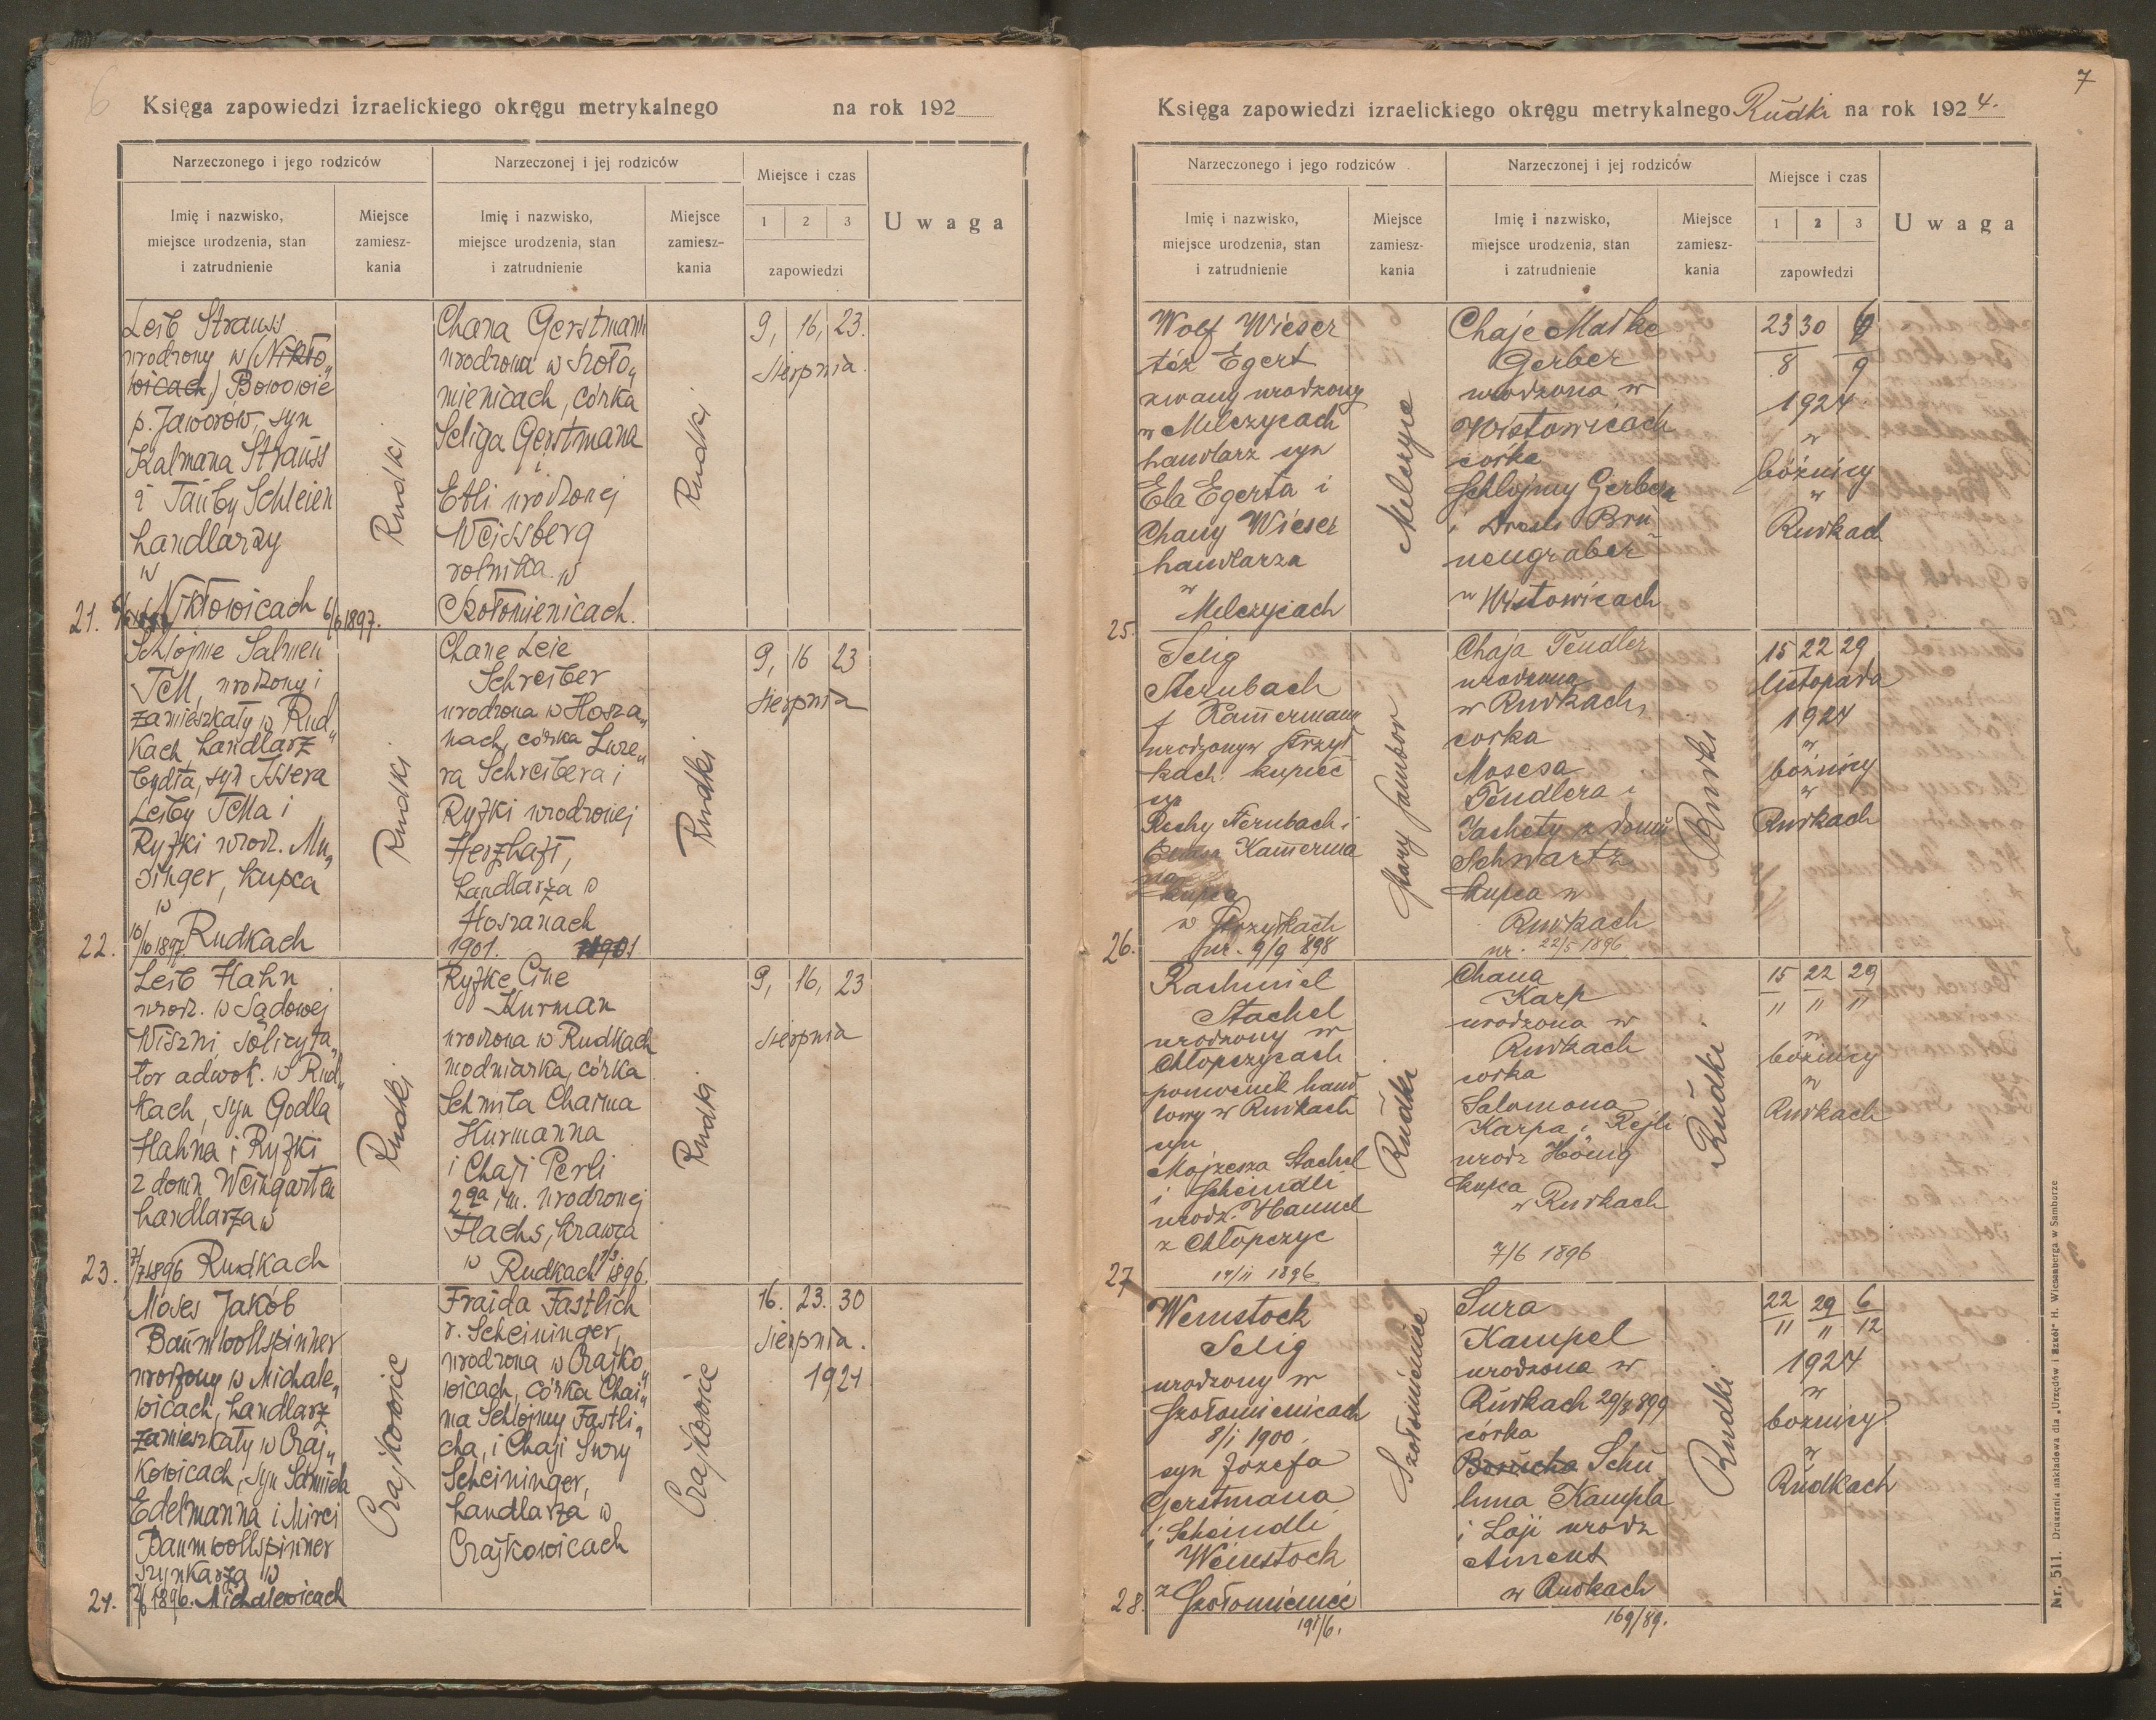 6
Księga zapowiedzi izraelickiego okręgu metrykalnego na rok 192
Narzeczonego i jego rodziców
Narzeczonej i jej rodziców
Miejsce i czas
Uwaga
Imię i nazwisko,
miejsce urodzenia, stan
i zatrudnienie
Miejsce
zamiesz-
kania
Imię i nazwisko,
miejsce urodzenia, stan
i zatrudnienie
Miejsce
zamiesz-
kania
1 2 3
zapowiedzi
21.
Leib Strauss
urodzony w (Nikło„
wicach) Bowowie
p. Jaworów, syn
Kalmana Strauss
i Tauby Schleien
handlarzy
w
Nikłowicach 6/6 1897.
Rudki
Chana Gerstmann
urodzona w Szoło„
mienicach, córka
Seliga Gerstmana
i
Etli urodzonej
Weissberg
rolnika w
Szołomienicach.
Rudki
9, 16, 23.
sierpnia.
22.
Schlojme Salmen
Tell, urodzony i
zamieszkały w Rud„
kach, handlarz
bydła, syn Issera
Leiby Tella i
Ryfki urodz. Mu„
singer, kupca
w
10/10 1897. Rudkach
Rudki
Chane Leie
Schreiber
urodzona w Hosza„
nach, córka Luze„
ra Schreibera i
Ryfki urodzonej
Herzhaft,
handlarza w
Hoszanach
1901.
Rudki
9, 16 23
sierpnia
23.
Leib Hahn
urodz. w Sądowej
Wiszni, solicyta„
tor adwok. w Rud„
kach, syn Godla
Hahna i Ryfki
z domu Weingarten
handlarza w
7/7 1896 Rudkach
Rudki
Ryfke Cine
Kurman
urodzona w Rudkach
modniarka, córka
Schmila Chaima
Kurmanna
i Chaji Perli
2ga im. urodzonej
Flachs, krawca
w Rudkach 7/3 1896.
Rudki
9, 16, 23
sierpnia
24.
Moses Jakób
Baumwollspinner
urodzony w Michale„
wicach, handlarz
zamieszkały w Czaj„
kowicach, syn Schmiela
Edelmanna i Mirci
Baumwollspinner
szynkarza w
1896. Michalewicach
Czajkowice
Fraida Fastlich
v. Scheininger,
urodzona w Czajko„
wicach, córka Chai„
ma Schlojmy Fastli„
cha, i Chaji Sury
Scheininger,
handlarza w
Czajkowicach
Czajkowice
16. 23. 30
sierpnia.
1924
7
Księga zapowiedzi izraelickiego okręgu metrykalnego Rudki na rok 1924.
Narzeczonego i jego rodziców
Narzeczonej i jej rodziców
Miejsce i czas
Uwaga
Imię i nazwisko,
miejsce urodzenia, stan
i zatrudnienie
Miejsce
zamiesz-
kania
Imię i nazwisko,
miejsce urodzenia, stan
i zatrudnienie
Miejsce
zamiesz-
kania
1 2 3
zapowiedzi
25.
Wolf Wieser
też Egert
zwany urodzony
w Milczycach
handlarz syn
Ela Egerta i
Chany Wieser
handlarza
w
Milczycach
Milczyce
Chaje Malke
Gerber
urodzona w
Wistowicach
córka
Schlojmy Gerbera
i Dresli Brü
nengraber
w Wistowicach
23 30 6
8 9
1924
w
bóżnicy
w
Rudkach
26.
Selig
Sternbach
f Kamerman
urodzony w Strzył
kach kupiec
syn
Peshy Sternbach i
Kamerma
na
kupca
w Strzyłkach
ur. 9/9 898
Stary Sambor
Chaja Tendler
urodzona
w Rudkach,
córka
Mosesa
Tendlera i
Jachety z domu
Schwartz
kupca w
Rudkach
ur. 22/5 1896
Rudki
15 22 29
listopada
1924
w
bóżnicy
w
Rudkach
27
Rachmiel
Stachel
urodzony w
Chłopczycach
pomocnik hand
lowy w Rudkach
syn
Mojżesza Stachel
i Scheindli
urodz. Hammel
z Chłopczyc
14/11 1896
Rudki
Chana
Karp
urodzona w
Rudkach
córka
Salomona
Karpa i Rejli
urodz Hönig
kupca
w Rudkach
7/6 1896
Rudki
15 22 29
11 11 11
w
bóżnicy
w
Rudkach
28.
Weinstock
Selig
urodzony w
Szołomienicach
8/I 1900.
syn Józefa
Gerstmana
i Scheindli
Weinstock
z
Szołomienic
191/6.
Szołomienice
Sura
Kampel
urodzona w
Rudkach 29/3 899
córka
Borucha Schu
lima Kampla
i Laji urodz
Ament
w Rudkach
169/89.
Rudki
22 29 6
11 11 12
1924
w
bożnicy
w
Rudkach
Nr. 511. Drukarnia nakładowa dla „Urzędów i Szkół" H. Wiesenberga w Samborze